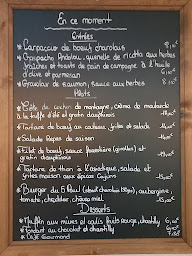 En ce moment
Entrées
Carpaccio de boeuf charolais
Gaspacho Andalou, quenelle de ricotta aux herbes
fraîches et toasts de pain de campagne à l'huile
d'olive et parmesan
Gravelax de saumon, sauce aux herbes
Plats
Côte de cochon de montagne, crème de moutarde
à la truffe d'été et gratin dauphinois
Tartare de boeuf au couteau, frites et salade
Salade Repas de saison
Filet de boeuf, sauce
dauphinois
Tartare de thon à l'asiatique, salade et
frites maison aux épices Cajuns
Burger du
tomate, cheddar, chèvre miel
Desserts
Muffin aux mûres et coulis fruits rouges, chantilly
Fondant au chocolat et chantilly
Café Gourmand